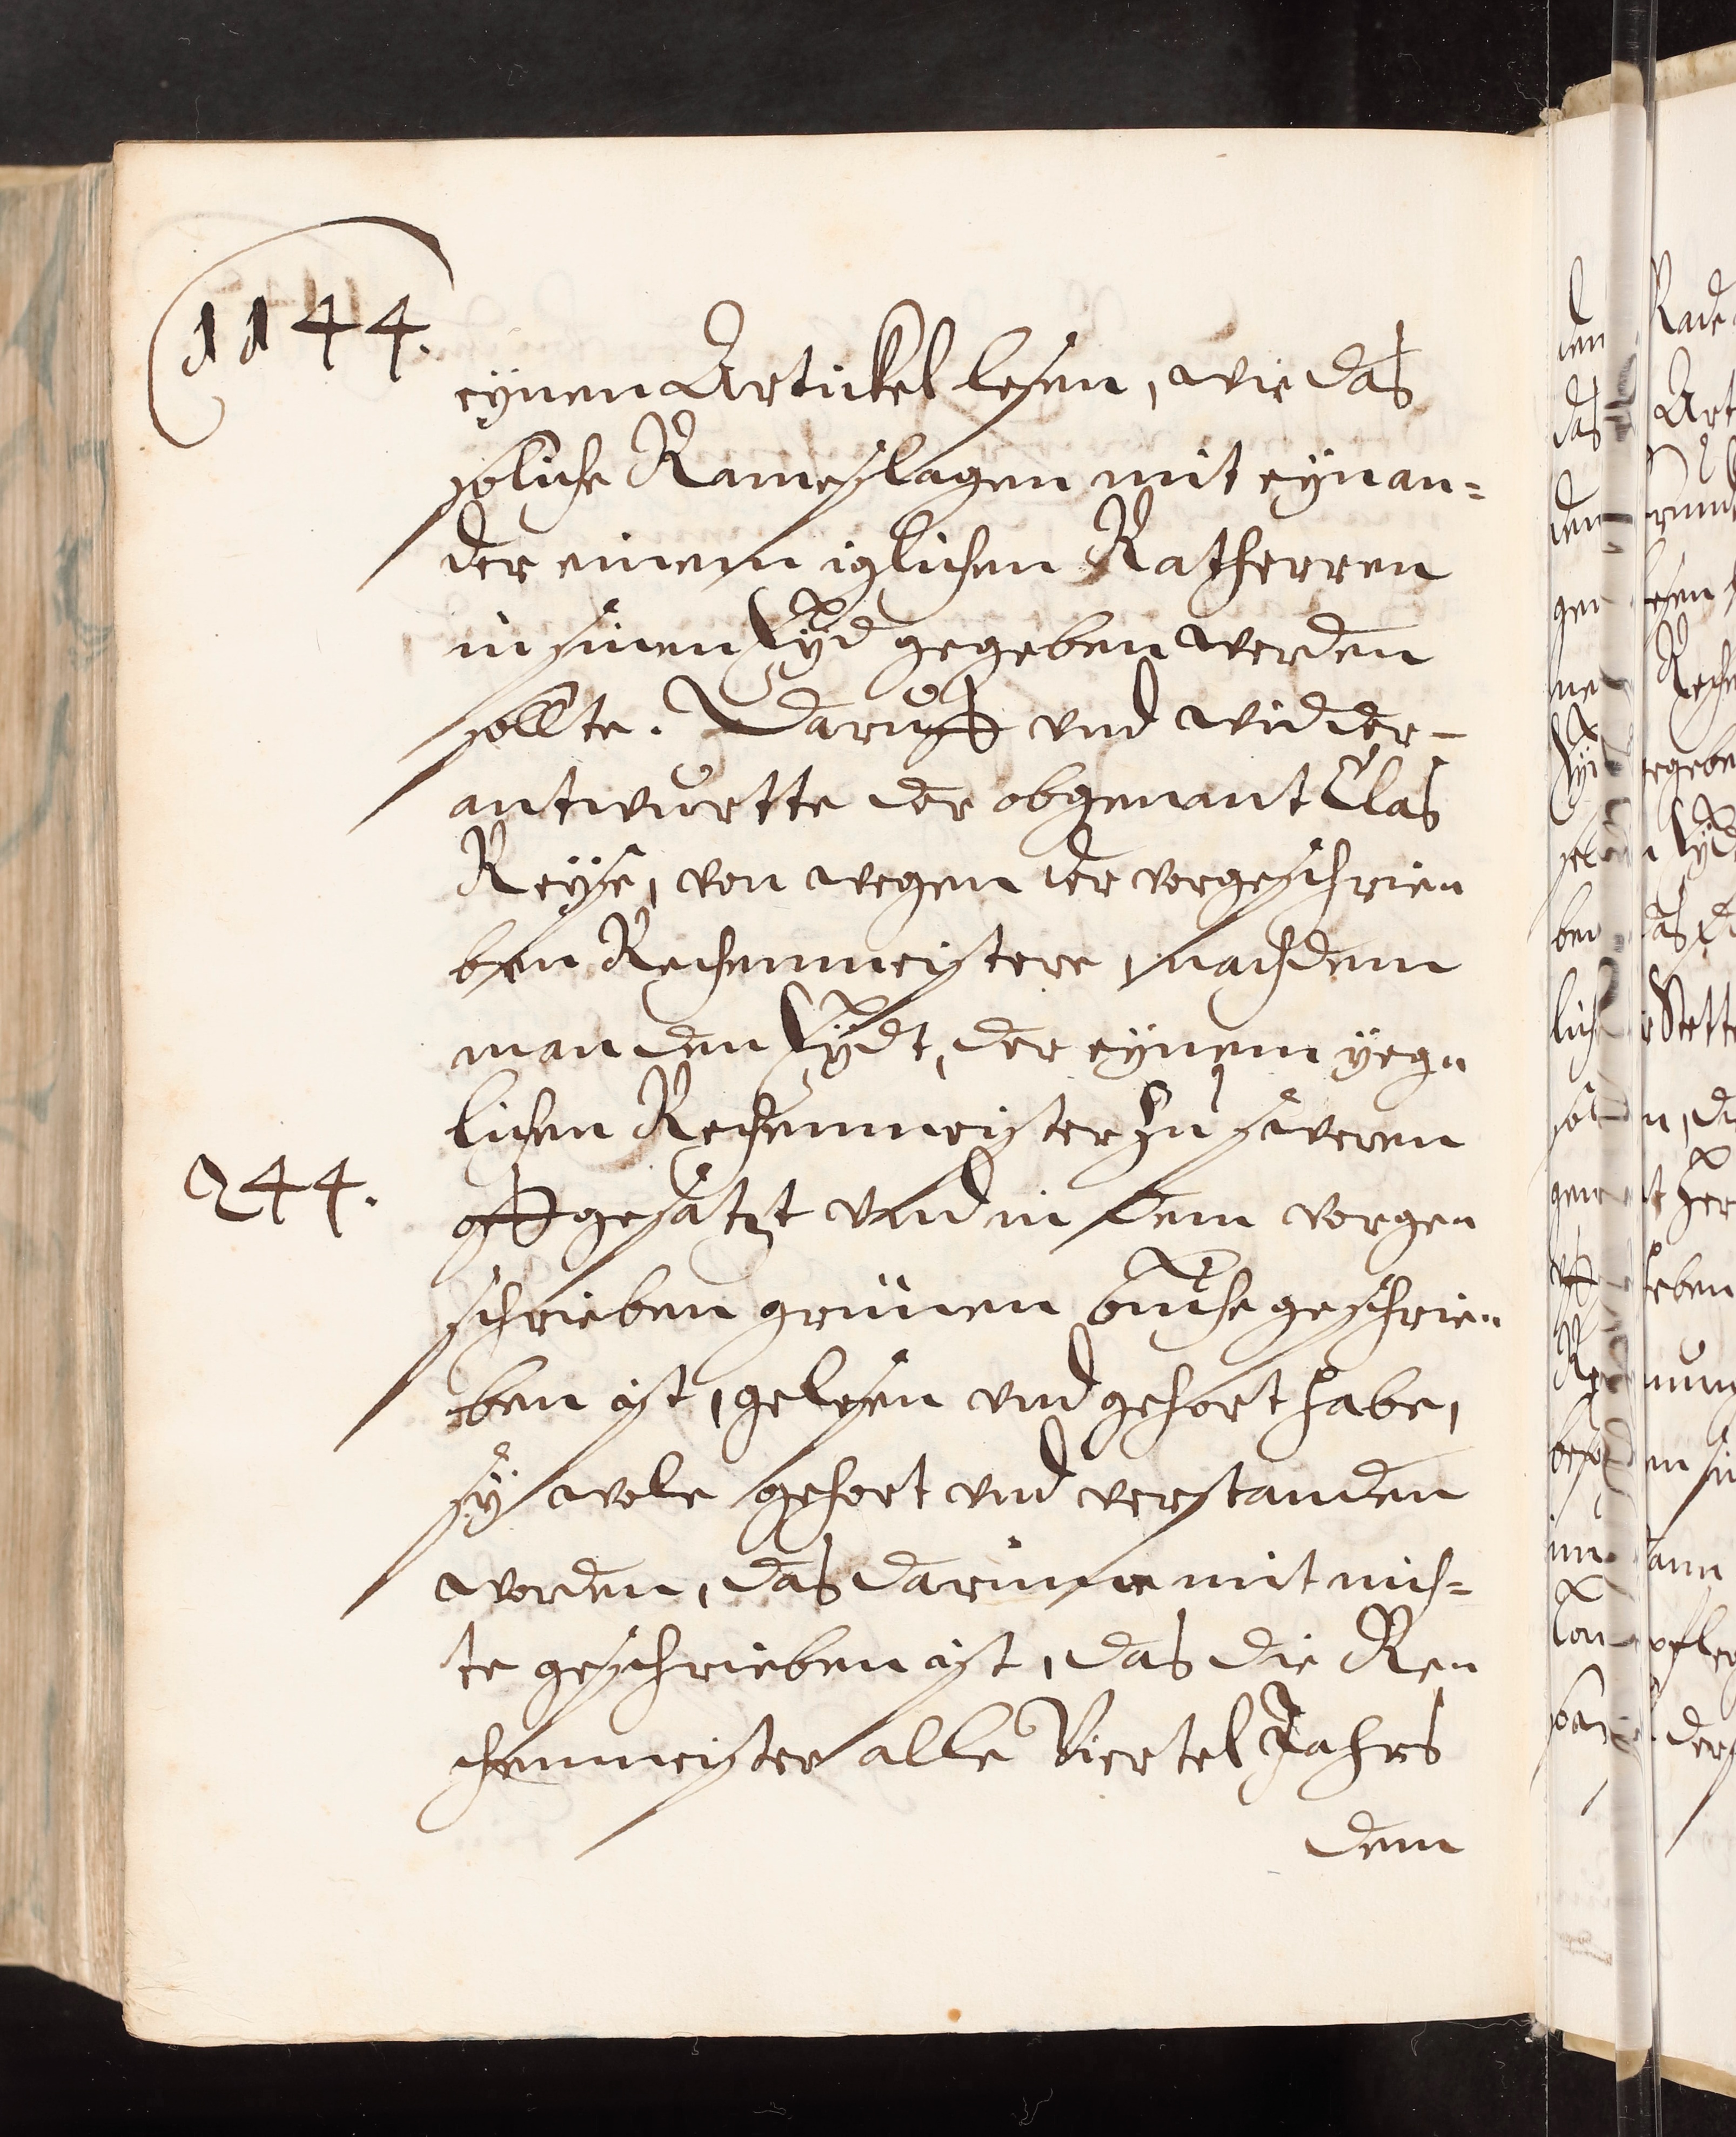 1144.
eynen Artickel lesen, wie das
soliche Rameslagen mit eynan=
der einem iglichen Rathherren
in sinen Eyd gegeben werden
sollte. Daruff und widder-
antwurtte der obgenant Clas
Reyse, von wegen der vorgeschrie„
ben Rechenmeistere, nachdem
man den Eydt, der eynem yeg„
lichen Rechenmeister zu sweren
244.
uffgesatzt vnd in dem vorge„
schrieben grünen buche geschrie„
ben ist, gelesen vnd gehort habe,
sy wole gehort vnd verstanden
worden, das darinne mit nich=
te geschrieben ist, das die Re„
chenmeister alle Viertel Jahrs
dem